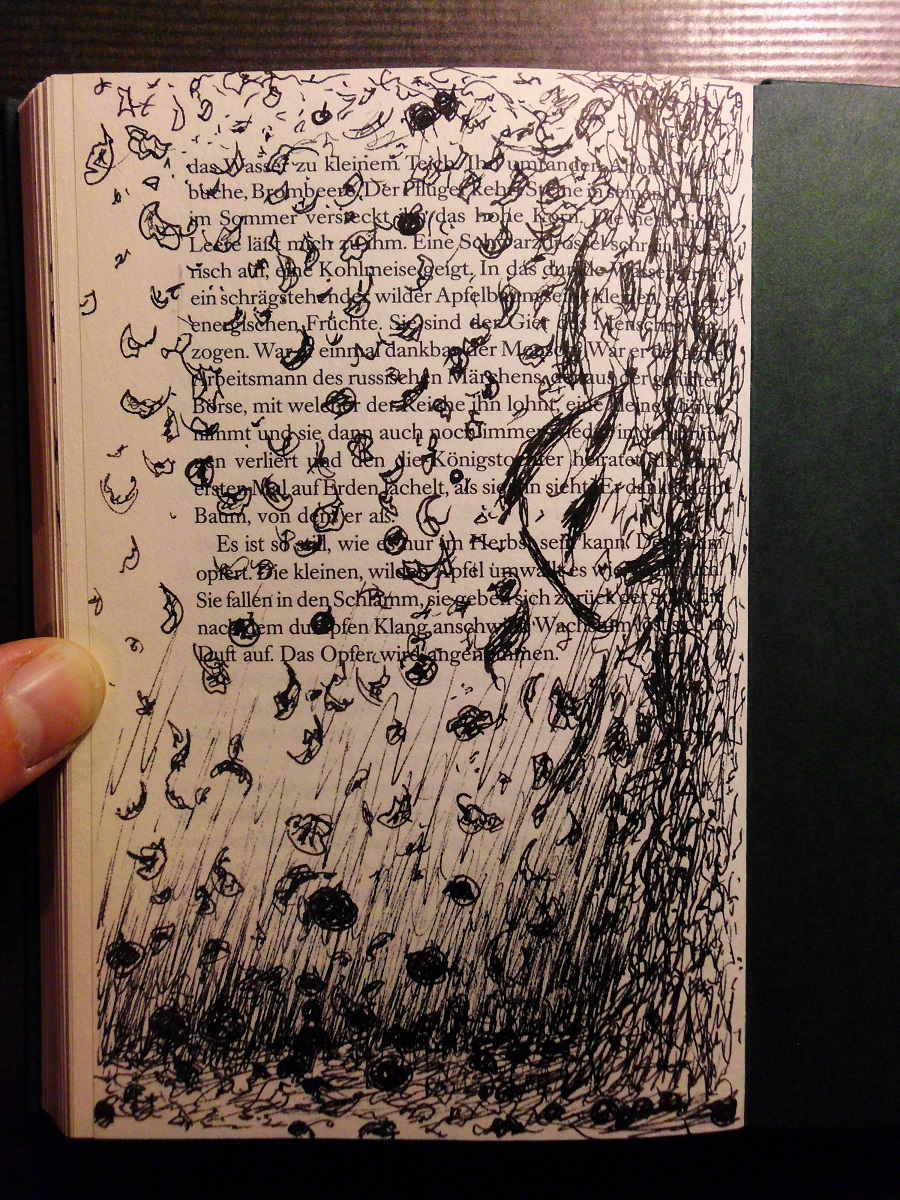 das Wasser zu kleinem Teich. Ihn umranden Ahorn,
buche, Brombeere. Der Pflüger kehrt Steine in
im Sommer versteckt ihn das hohe Korn. Die
Leere läßt mich zu ihm. Eine Schwarzdrossel
risch auf, eine Kohlmeise geigt. In das dunkle Wasser
ein schrägstehender wilder Apfelbaum seine kleinen,
energischen Früchte. Sie sind der Gier des Menschen
zogen. War er einmal dankbar, der Mensch? War er
Arbeitsmann des russischen Märchens, der aus der gefüllten
Börse, mit welcher der Reiche ihn lohnt, eine kleine Münze
nimmt und sie dann auch noch immer wieder in den
nen verliert und den die Königstochter heiratet, die zum
ersten Mal auf Erden lächelt, als sie ihn sieht? Er dankte dem
Baum, von dem er aß.
Es ist so still, wie es nur im Herbst sein kann. Der Baum
opfert. Die kleinen, wilden Äpfel umwallt es wie
Sie fallen in den Schlamm, sie geben sich zurück der
nach dem dumpfen Klang anschwillt. Wachstum
Duft auf. Das Opfer wird angenommen.